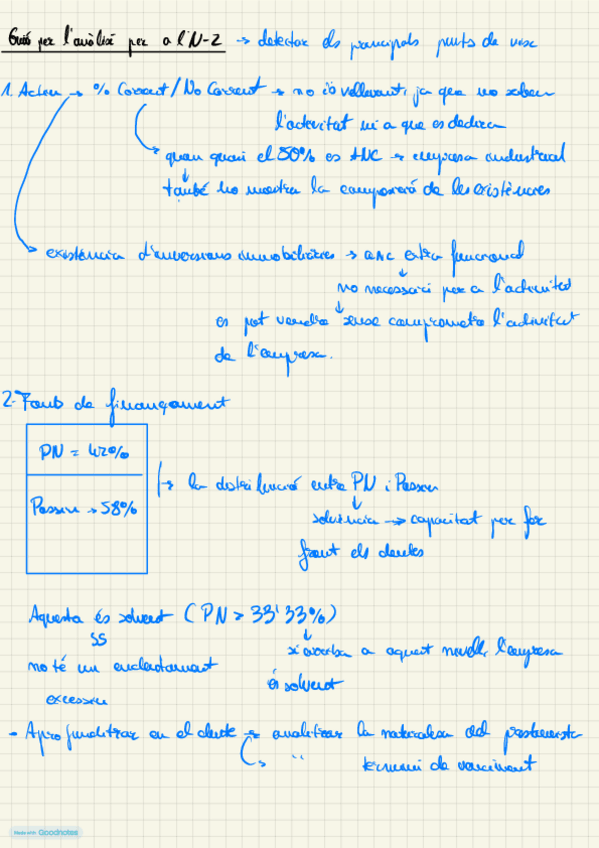 Guió per l'anàlisi per a l'N-2 → detectar els principals punts de risc
1. Actiu → % Corrent / No Corrent → no és rellevant, ja que no sabem
l'activitat ni a que es dedica
quan quasi el 50% és ANC → empresa industrial
també ho mostra la composició de les existències
existència d'inversions immobiliàries → ANC extra funcional
no necessari per a l'activitat
es pot vendre sense comprometre l'activitat
de l'empresa.
2- Fonts de finançament
PN = 42%
Passiu → 58%
→ la distribució entre PN i Passiu
solvència → capacitat per fer
front els deutes
Aquesta és solvent (PN > 33'33%)
no té un endeutament
excessiu
s'acosta a aquest nivell, l'empresa
és solvent
- Aprofunditzar en el deute → analitzar la naturalesa del prestamista
→ " termini de venciment
Made with Goodnotes